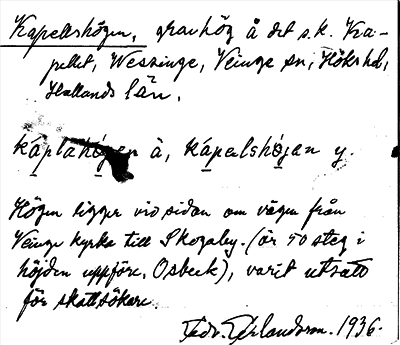 Kapellshögen, gravhög å det s.k. Ka-
pellet, Wessinge, Veinge sn, Höks hd,
Hallands län.
kaplahögen ä, kápelshójan y.
Högen ligger vid sidan om vägen från
Veinge kyrka till Skogaby. (är 50 steg i
höjden uppföre, Osbeck), varit utsatt
för skattsökare.
Edv. Erlandsson. 1936.